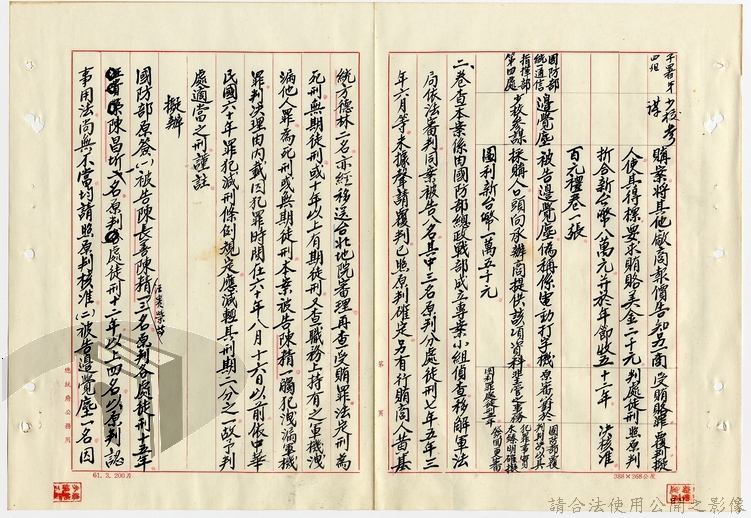 購案將其他廠商報價告知另商
人使其得標要求賄賂美金二千元
折合新台幣八萬元并於年節收五十二年
百元禮卷一張
受賄賂罪
判處徒刑
覆判擬
照原判
決核准
國防部
統一通信
指揮部
第四處
少校參謀
邊覺塵
被告邊覺塵偽稱條電動打字機
採購八〇頭向承辦商提供該項資料
圖利新台幣一萬五千元
圖利罪處刑五年
國防部覆
發回更審
二、卷查本案係由國防部總政戰部成立專案小組偵查移解軍法
局依法審判同案被告八名其中三名原判分處徒刑七年五年三
年六月等未據聲請覆判已照原判確定另有行賄商人黃基
統方德林二名亦經移送台北地院審理再查受賄罪法定刑為
死刑無期徒刑或十年以上有期徒刑又查職務上持有之軍機洩
漏他人罪為死刑或無期徒刑本案被告陳精一觸犯洩漏軍機
罪判決理由內載因犯罪時間在六十年八月十六日以前依中華
民國六十年罪犯減刑條例規定應減輕其刑期二分之一故予判
處適當之刑謹註
擬辦
國防部原簽(一)被告陳長善陳精一三名原判各處徒刑十五年
陳昌圻 名原判 處徒刑十二年以上四名以原判認
事用法尚無不當均請照原判核准(二)被告邊覺塵一名因
總統府公務用
第 頁
61. 3. 200刀
388×268公厘
請合法使用公開之影像